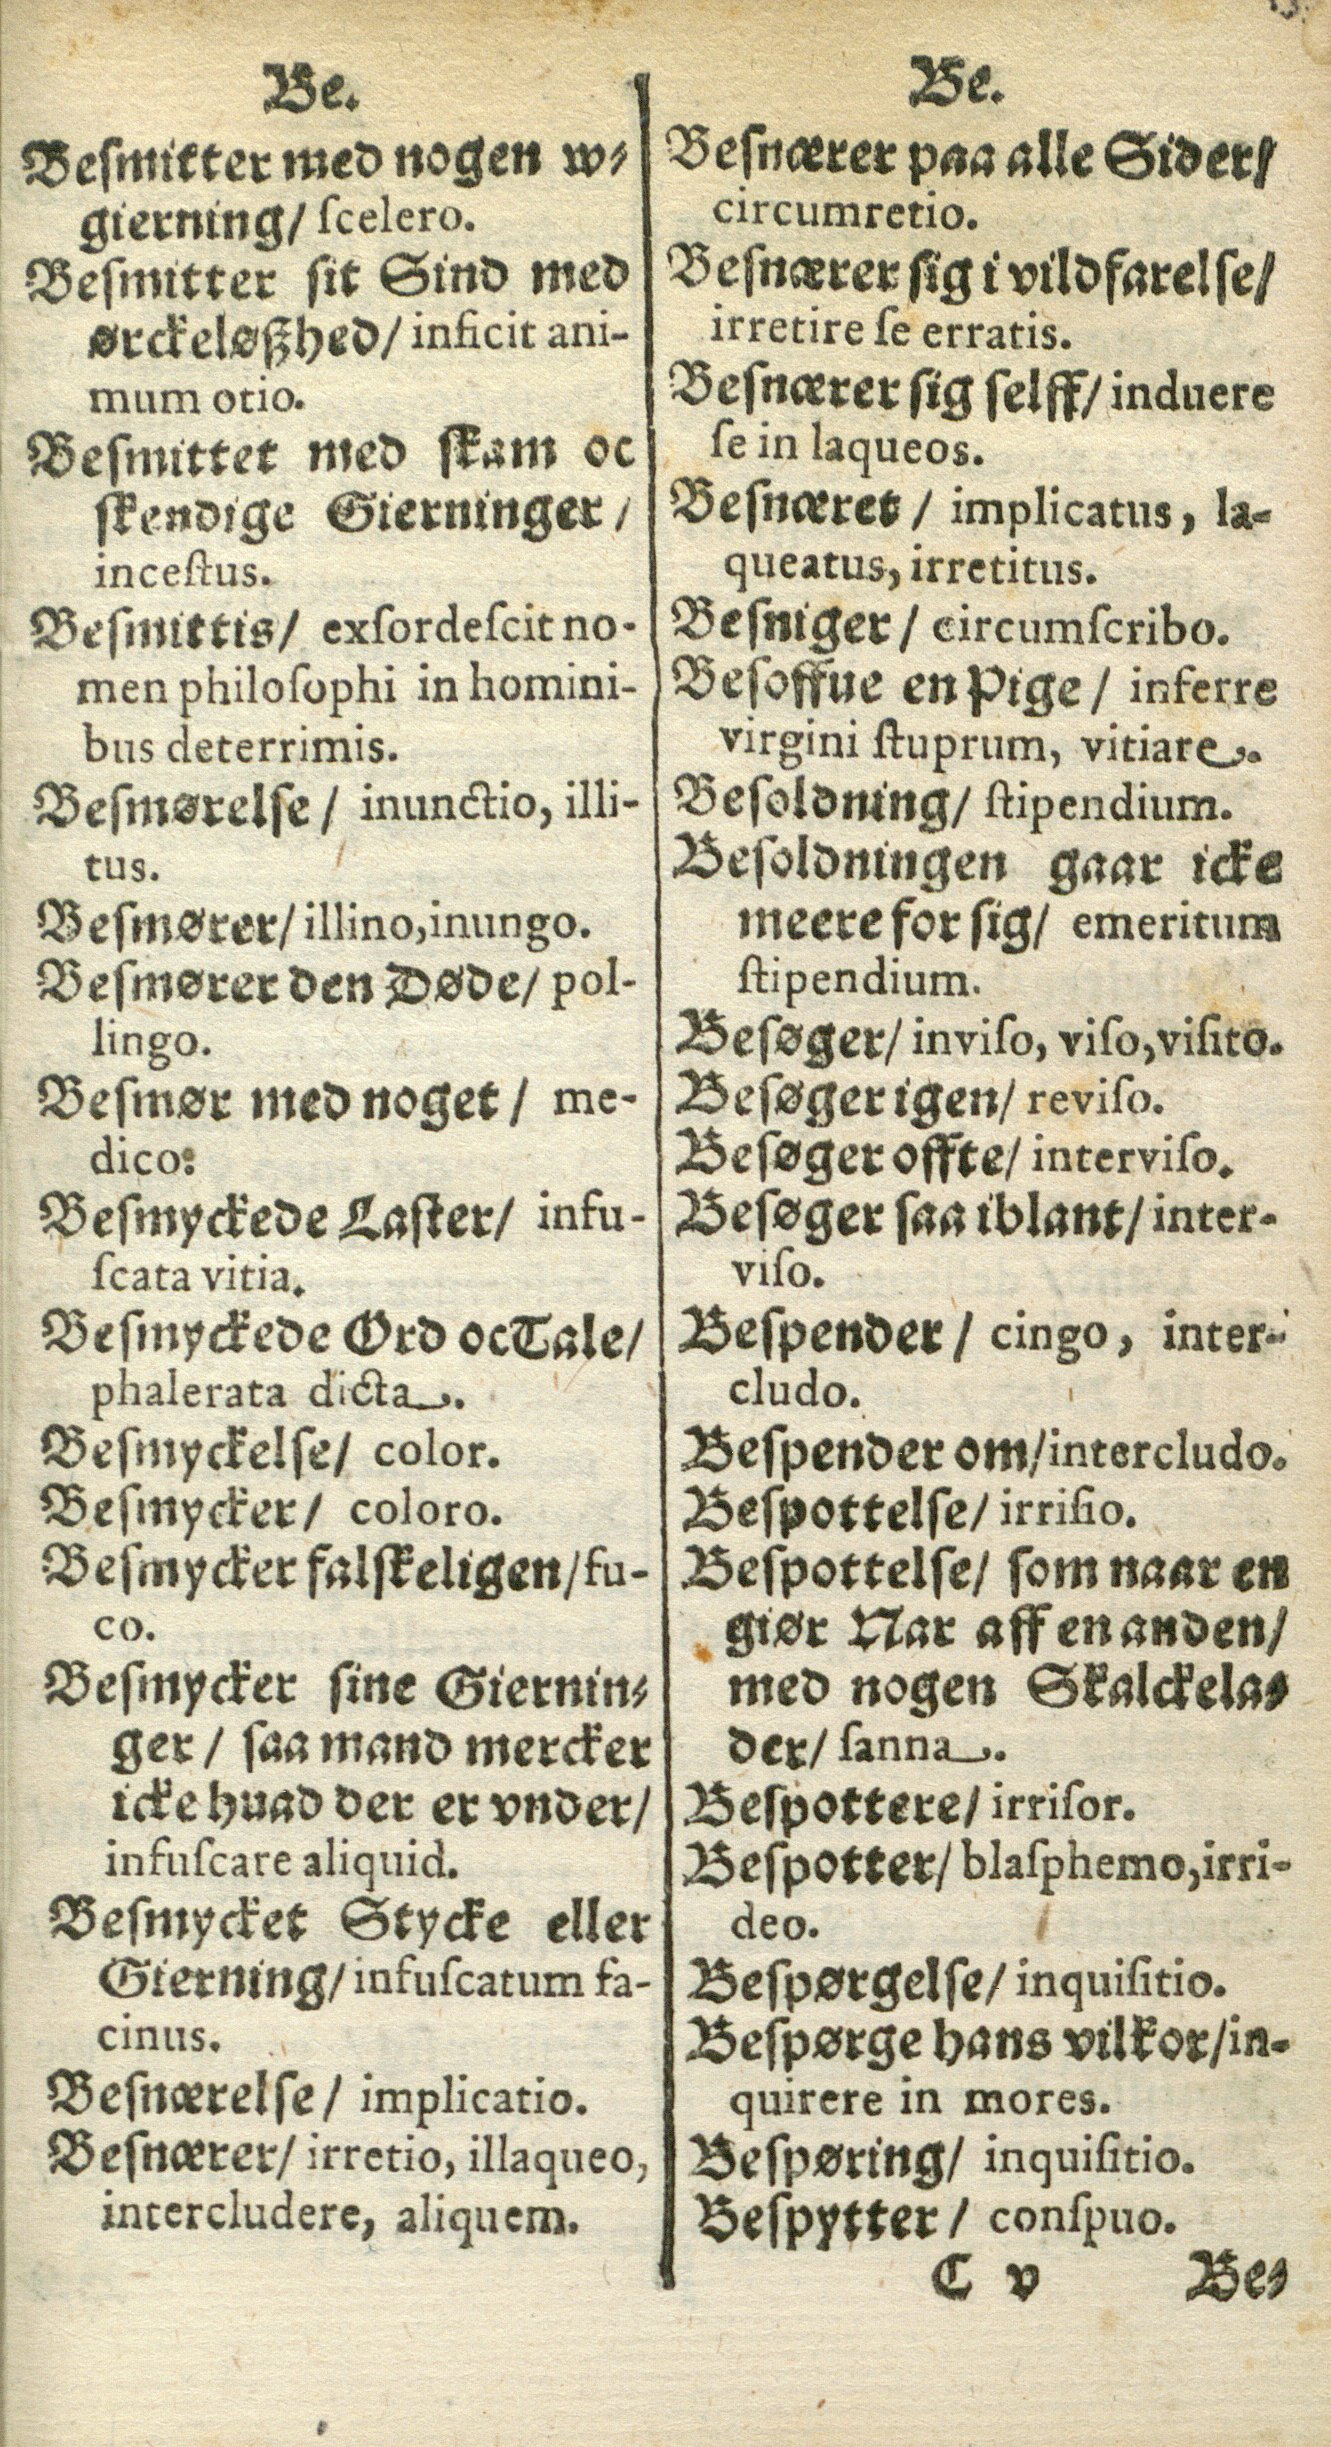 Be.
Beſmitter med nogen w⸗
gierning/ ſcelero.
Beſmitter ſit Sind med
ørckeløßhed/ inficit ani-
mum otio.
Beſmittet med ſkam oc
ſkendige Gierninger /
inceſtus.
Beſmittis/ exſordeſcit no-
men philoſophi in homini-
bus deterrimis.
Beſmørelſe / inunctio, illi-
tus.
Beſmører/ illino, inungo.
Beſmører den Døde/ pol-
lingo.
Beſmør med noget / me-
dico:
Beſmyckede Laſter/ infu-
ſcata vitia.
Beſmyckede Ord oc Tale/
phalerata dicta.
Beſmyckelſe/ color.
Beſmycker/ coloro.
Beſmycker falſkeligen/ fu-
co.
Beſmycker ſine Giernin⸗
ger / ſaa mand mercker
icke huad der er vnder/
infuſcare aliquid.
Beſmycket Stycke eller
Gierning/ infuſcatum fa-
cinus.
Beſnærelſe / implicatio.
Beſnærer/ irretio, illaqueo,
intercludere, aliquem.
Be.
Beſnærer paa alle Sider/
circumretio.
Beſnærer ſig i vildfarelſe/
irretire ſe erratis.
Beſnærer ſig ſelff/ induere
ſe in laqueos.
Beſnæret / implicatus, la-
queatus, irretitus.
Beſniger / circumſcribo.
Beſoffue en Pige / inferre
virgini ſtuprum, vitiare.
Beſoldning/ ſtipendium.
Beſoldningen gaar icke
meere for ſig/ emeritum
ſtipendium.
Beſøger/ inviſo, viſo, viſito.
Beſøger igen/ reviſo.
Beſøger offte/ interviſo.
Beſøger ſaa iblant/ inter-
viſo.
Beſpender / cingo, inter-
cludo.
Beſpender om/ intercludo.
Beſpottelſe/ irriſio.
Beſpottelſe/ ſom naar en
giør Nar aff en anden/
med nogen Skalckela⸗
der/ ſanna.
Beſpottere/ irriſor.
Beſpotter/ blaſphemo, irri-
deo.
Beſpørgelſe/ inquiſitio.
Beſpørge hans vilkor/ in-
quirere in mores.
Beſpøring/ inquiſitio.
Beſpytter / conſpuo.
C v Be⸗